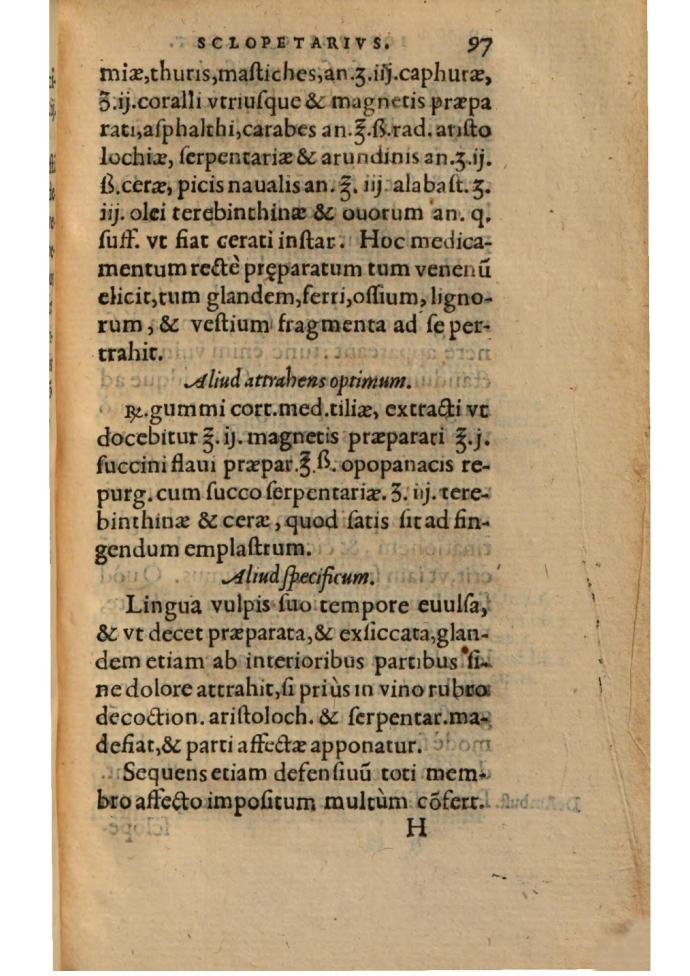 SCLOPETARIVS. 97
miæ,thuris,maſtiches,an.ʒ.iij.caphuræ,
℥.ij.coralli vtriuſque & magnetis præpa
rati,aſphalthi,carabes an.℥.ß.rad. ariſto
lochiæ, ſerpentariæ & arundinis an.ʒ.ij.
ß.ceræ, picis naualis an. ℥. iij. alabaſt. ʒ.
iij. olei terebinthinæ & ouorum an. q.
ſuff. vt fiat cerati inſtar. Hoc medica-
mentum rectè pręparatum tum venenū
elicit,tum glandem,ferri,oſſium, ligno-
rum, & veſtium fragmenta ad ſe per-
trahit.
Aliud attrahens optimum.
℞.gummi cort.med.tiliæ, extracti vt
docebitur ℥. ij. magnetis præparati ℥.j.
ſuccini flaui præpar.℥.ß. opopanacis re-
purg. cum ſucco ſerpentariæ. ʒ. iij. tere-
binthinæ & ceræ, quod ſatis ſit ad fin-
gendum emplaſtrum.
Aliud ſpecificum.
Lingua vulpis ſuo tempore euulſa,
& vt decet præparata,& exſiccata,glan-
dem etiam ab interioribus partibus ſi-
ne dolore attrahit,ſi priùs in vino rubro
decoction. ariſtoloch. & ſerpentar.ma-
defiat,& parti affectæ apponatur.
Sequens etiam defenſiuū toti mem-
bro affecto impoſitum multùm cõfert.
H